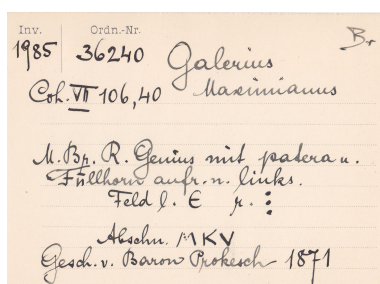 Inv. Ordn.-Nr.
1985 36240 Galerius Br
Coh. VII 106,40 Maximianus
M. Br. R. Genius mit patera u.
Füllhorn aufr. n. links.
Feld l. E r. :
Abschn. MKV
Gesch. v. Baron Prokesch 1871